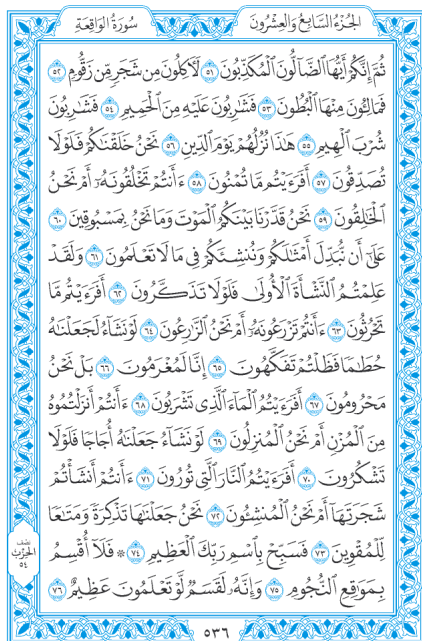 الجزء السابع والعشرون
سورة الواقعة
ثُمَّ إِنَّكُمْ أَيُّهَا ٱلضَّآلُّونَ ٱلْمُكَذِّبُونَ ٥١ لَأٓكِلُونَ مِن شَجَرٍ مِّن زَقُّومٍ ٥٢
فَمَالِـُٔونَ مِنْهَا ٱلْبُطُونَ ٥٣ فَشَٰرِبُونَ عَلَيْهِ مِنَ ٱلْحَمِيمِ ٥٤ فَشَٰرِبُونَ
شُرْبَ ٱلْهِيمِ ٥٥ هَٰذَا نُزُلُهُمْ يَوْمَ ٱلدِّينِ ٥٦ نَحْنُ خَلَقْنَٰكُمْ فَلَوْلَا
تُصَدِّقُونَ ٥٧ أَفَرَءَيْتُم مَّا تُمْنُونَ ٥٨ ءَأَنتُمْ تَخْلُقُونَهُۥٓ أَمْ نَحْنُ
ٱلْخَٰلِقُونَ ٥٩ نَحْنُ قَدَّرْنَا بَيْنَكُمُ ٱلْمَوْتَ وَمَا نَحْنُ بِمَسْبُوقِينَ ٦٠
عَلَىٰٓ أَن نُّبَدِّلَ أَمْثَٰلَكُمْ وَنُنشِئَكُمْ فِى مَا لَا تَعْلَمُونَ ٦١ وَلَقَدْ
عَلِمْتُمُ ٱلنَّشْأَةَ ٱلْأُولَىٰ فَلَوْلَا تَذَكَّرُونَ ٦٢ أَفَرَءَيْتُم مَّا
تَحْرُثُونَ ٦٣ ءَأَنتُمْ تَزْرَعُونَهُۥٓ أَمْ نَحْنُ ٱلزَّٰرِعُونَ ٦٤ لَوْ نَشَآءُ لَجَعَلْنَٰهُ
حُطَٰمًا فَظَلْتُمْ تَفَكَّهُونَ ٦٥ إِنَّا لَمُغْرَمُونَ ٦٦ بَلْ نَحْنُ
مَحْرُومُونَ ٦٧ أَفَرَءَيْتُمُ ٱلْمَآءَ ٱلَّذِى تَشْرَبُونَ ٦٨ ءَأَنتُمْ أَنزَلْتُمُوهُ
مِنَ ٱلْمُزْنِ أَمْ نَحْنُ ٱلْمُنزِلُونَ ٦٩ لَوْ نَشَآءُ جَعَلْنَٰهُ أُجَاجًا فَلَوْلَا
تَشْكُرُونَ ٧٠ أَفَرَءَيْتُمُ ٱلنَّارَ ٱلَّتِى تُورُونَ ٧١ ءَأَنتُمْ أَنشَأْتُمْ
شَجَرَتَهَآ أَمْ نَحْنُ ٱلْمُنشِـُٔونَ ٧٢ نَحْنُ جَعَلْنَٰهَا تَذْكِرَةً وَمَتَٰعًا
لِّلْمُقْوِينَ ٧٣ فَسَبِّحْ بِٱسْمِ رَبِّكَ ٱلْعَظِيمِ ٧٤ ۞ فَلَآ أُقْسِمُ
بِمَوَٰقِعِ ٱلنُّجُومِ ٧٥ وَإِنَّهُۥ لَقَسَمٌ لَّوْ تَعْلَمُونَ عَظِيمٌ ٧٦
نصف
الحزب
٥٤
٥٣٦